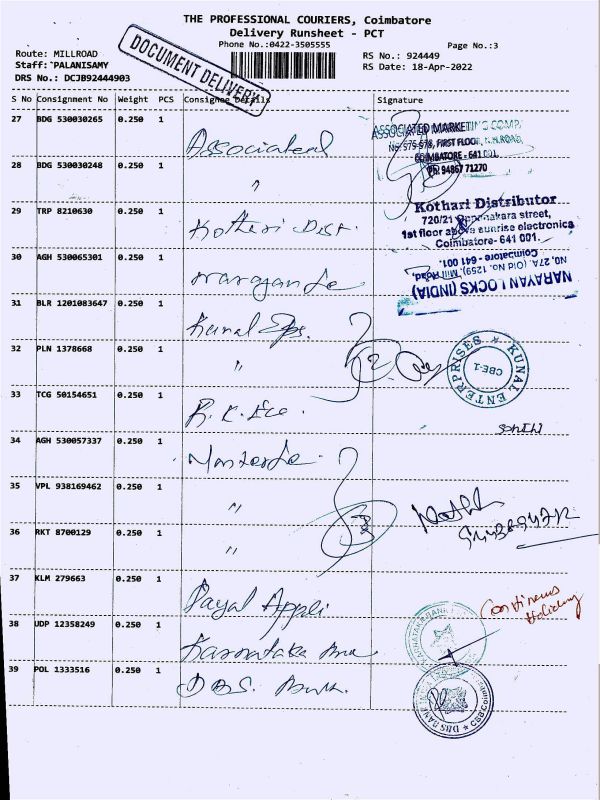 THE PROFESSIONAL COURIERS, Coimbatore
Delivery Runsheet - PCT
Phone No.:0422-3505555
Page No.:3
Route: MILLROAD
RS No.: 924449
Staff: PALANISAMY
RS Date: 18-Apr-2022
DRS No.: DCJB92444903
DOCUMENT DELIVERY
S No Consignment No Weight PCS Consignee Details Signature
27 BDG 530030265 0.250 1 Associated
ASSOCIATED MARKETING COMP.
No. 575-578, FIRST FLOOR, N.H.ROAD,
COIMBATORE - 641 001.
Ph: 94867 71270
28 BDG 530030248 0.250 1 "
29 TRP 8210630 0.250 1 Kothari Dist.
Kothari Distributor
720/21 street,
1st floor above sunrise electronica
Coimbatore- 641 001.
30 AGH 530065301 0.250 1
NARAYAN LOCKS (INDIA)
NO. 27A, (Old No. 1259), Mill Road,
Coimbatore - 641 001.
31 BLR 1201083647 0.250 1 Kunal
32 PLN 1378668 0.250 1 "
KUNAL ENTERPRISES
CBE-1
33 TCG 50154651 0.250 1
34 AGH 530057337 0.250 1
35 VPL 938169462 0.250 1 "
36 RKT 8700129 0.250 1 "
37 KLM 279663 0.250 1 Payal Appli
Continews
Holiday
38 UDP 12358249 0.250 1 Karnataka
KARNATAKA BANK
39 POL 1333516 0.250 1 DBS. Bank.
DBS BANK INDIA